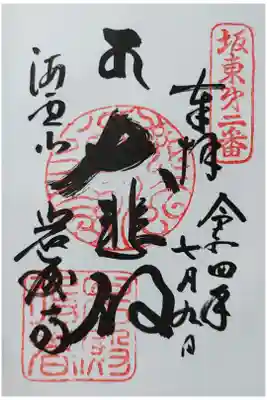 坂東㐧二番
奉拝
令和四年
七月九日
大悲殿
海雲山
岩殿寺